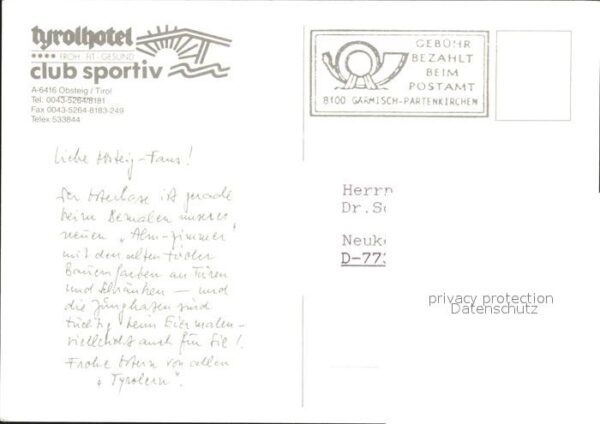 tyrolhotel
•••• FROH · FIT · GESUND
club sportiv
A-6416 Obsteig / Tirol
Tel. 0043-5264/8181
Fax 0043-5264-8183-249
Telex 533844
GEBÜHR
BEZAHLT
BEIM
POSTAMT
8100 GARMISCH-PARTENKIRCHEN
Liebe Obsteig-Fans!
Der Osterhase ist gerade
beim Bemalen unserer
neuen "Alm-Zimmer"
mit den alten Tiroler
Bauernfarben an Türen
und Schränken – und
die Junghasen sind
tüchtig beim Eiermalen –
vielleicht auch für Sie!
Frohe Ostern von allen
"Tyrolern".
Herrn
Dr. Sc
Neuk
D-773
privacy protection
Datenschutz